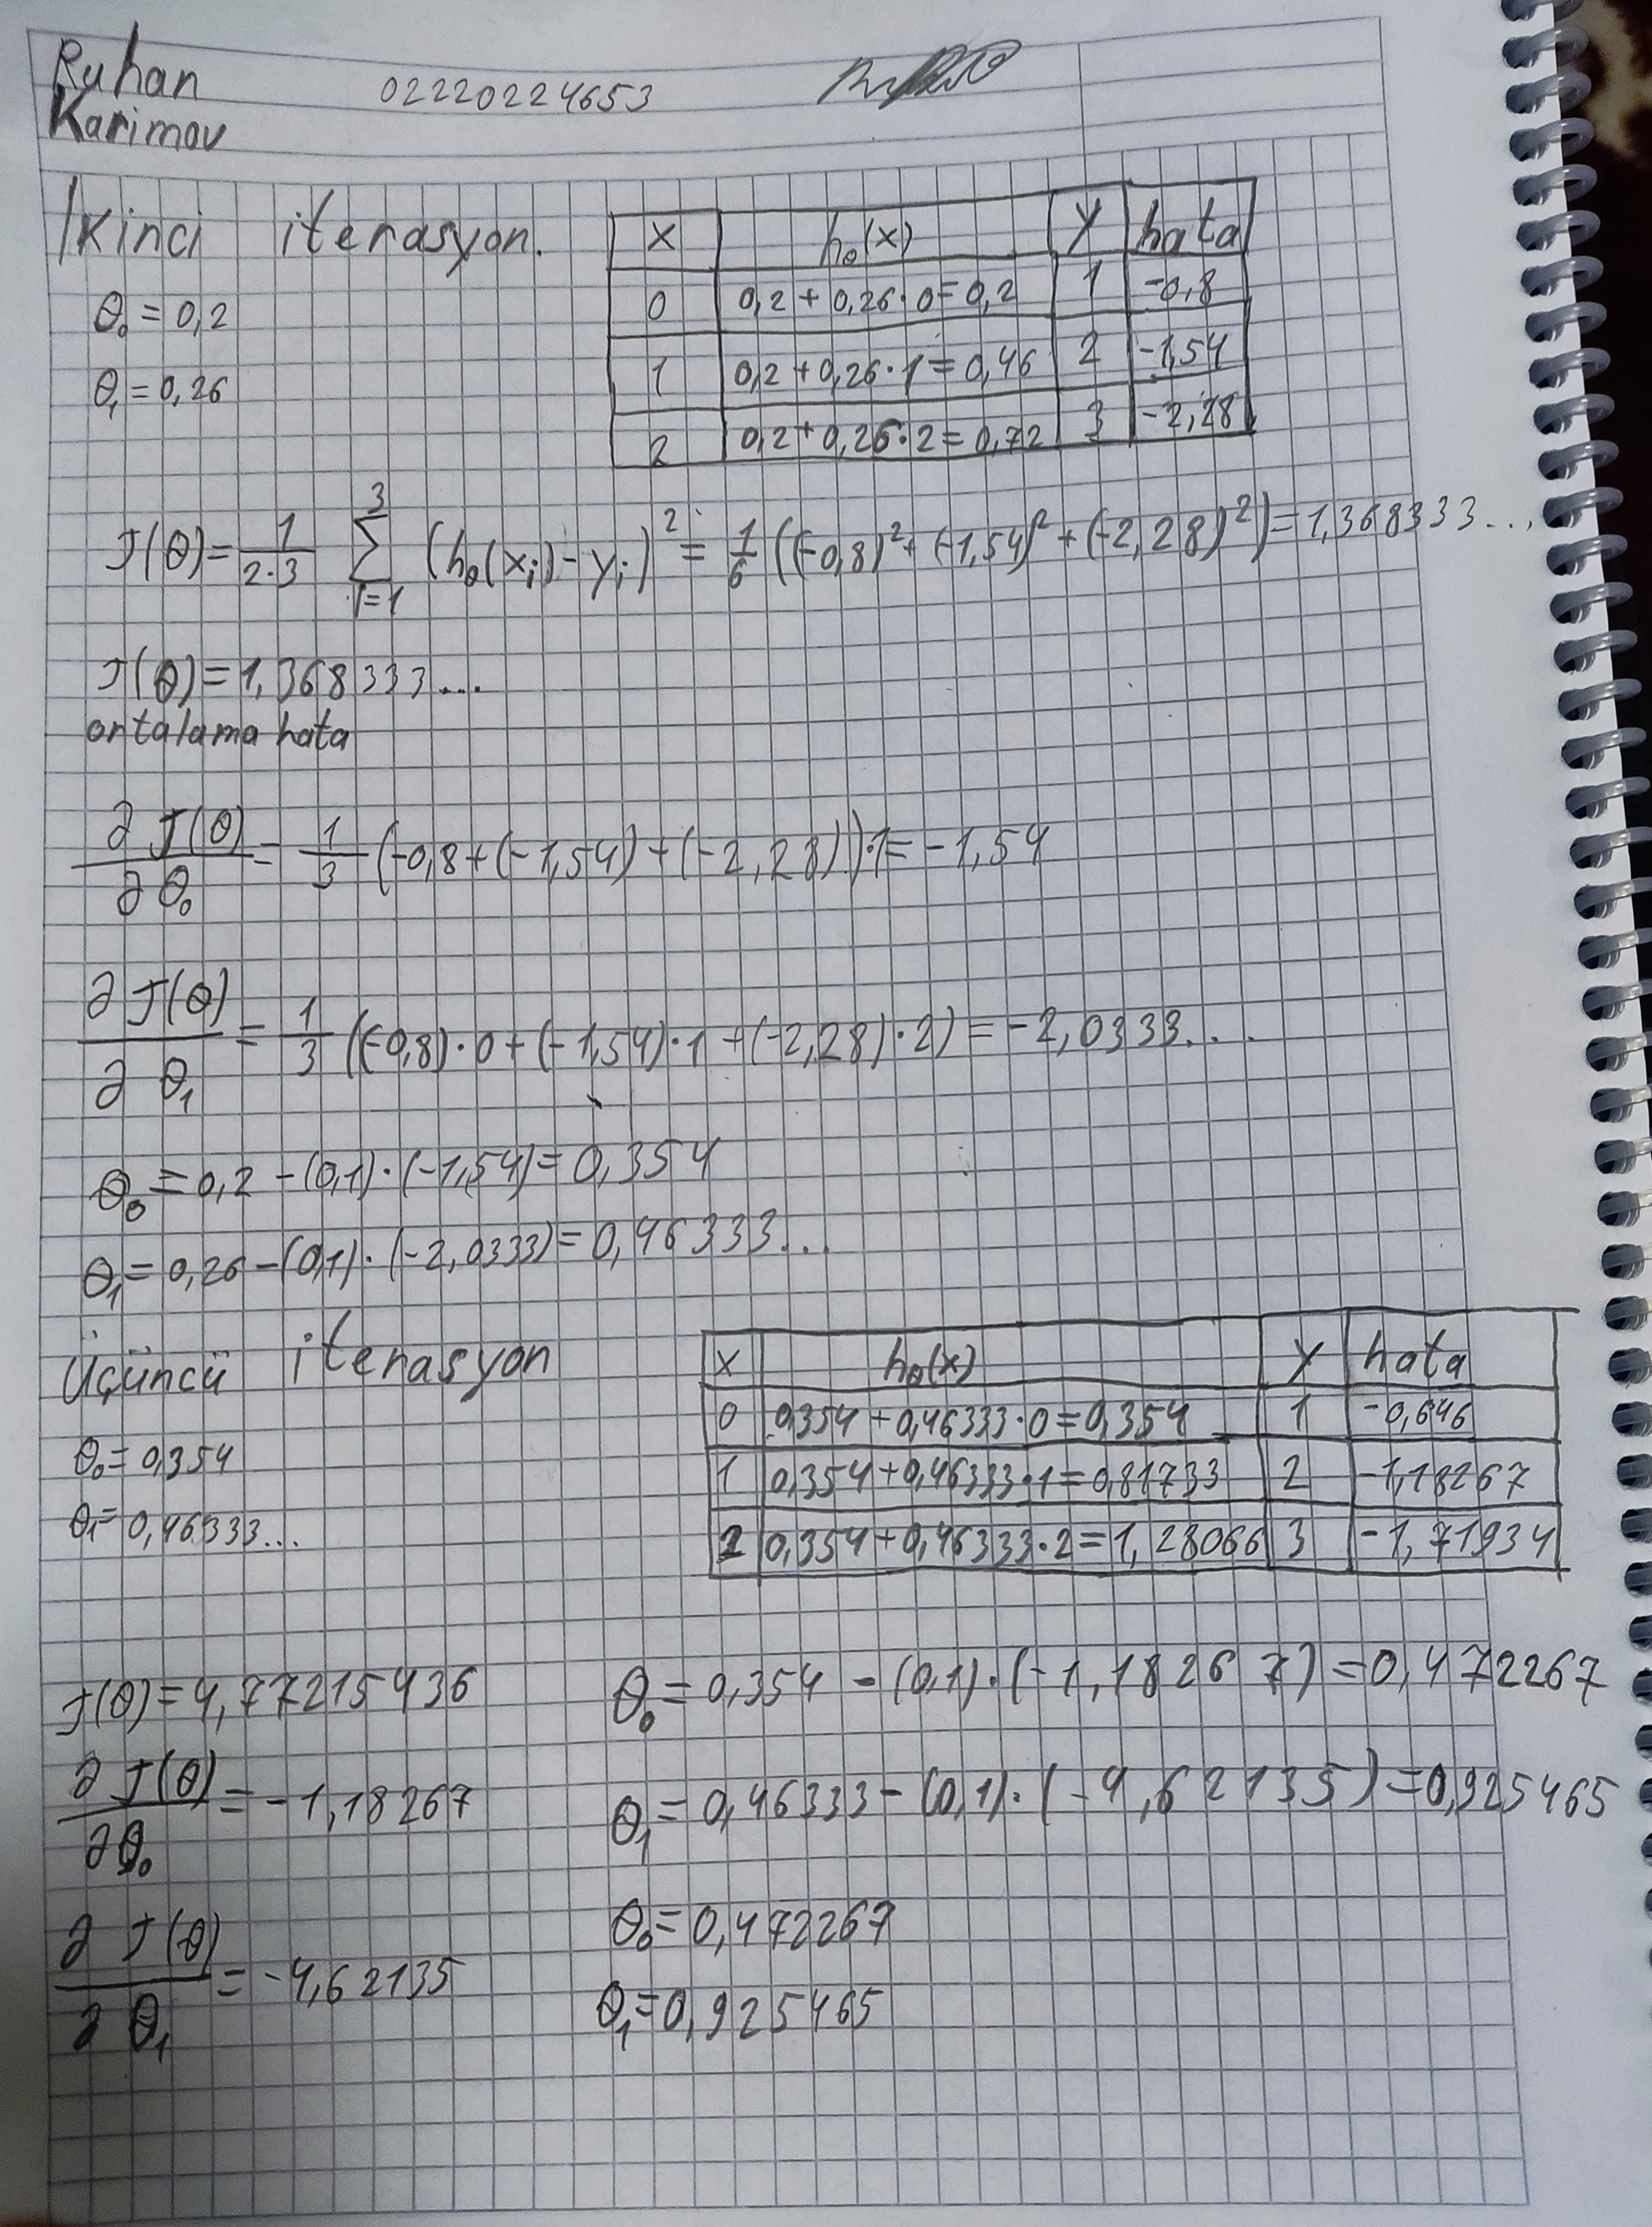 Ruhan 02220224653
Karimov
İkinci iterasyon.
θ₀ = 0,2
θ₁ = 0,26
x hθ(x) y hata
0 0,2 + 0,26·0 = 0,2 1 -0,8
1 0,2 + 0,26·1 = 0,46 2 -1,54
2 0,2 + 0,26·2 = 0,72 3 -2,28
J(θ) = 1/(2·3) ∑_{i=1}^{3} (hθ(xᵢ) - yᵢ)² = 1/6 ((-0,8)² + (-1,54)² + (-2,28)²) = 1,368333...
J(θ) = 1,368333...
ortalama hata
∂J(θ)/∂θ₀ = 1/3 (-0,8 + (-1,54) + (-2,28))·1 = -1,54
∂J(θ)/∂θ₁ = 1/3 ((-0,8)·0 + (-1,54)·1 + (-2,28)·2) = -2,0333...
θ₀ = 0,2 - (0,1)·(-1,54) = 0,354
θ₁ = 0,26 - (0,1)·(-2,0333) = 0,46333...
Üçüncü iterasyon
θ₀ = 0,354
θ₁ = 0,46333...
x hθ(x) y hata
0 0,354 + 0,46333·0 = 0,354 1 -0,646
1 0,354 + 0,46333·1 = 0,81733 2 -1,18267
2 0,354 + 0,46333·2 = 1,28066 3 -1,71934
J(θ) = 4,77215436
∂J(θ)/∂θ₀ = -1,18267
∂J(θ)/∂θ₁ = -4,62135
θ₀ = 0,354 - (0,1)·(-1,18267) = 0,472267
θ₁ = 0,46333 - (0,1)·(-4,62135) = 0,925465
θ₀ = 0,472267
θ₁ = 0,925465